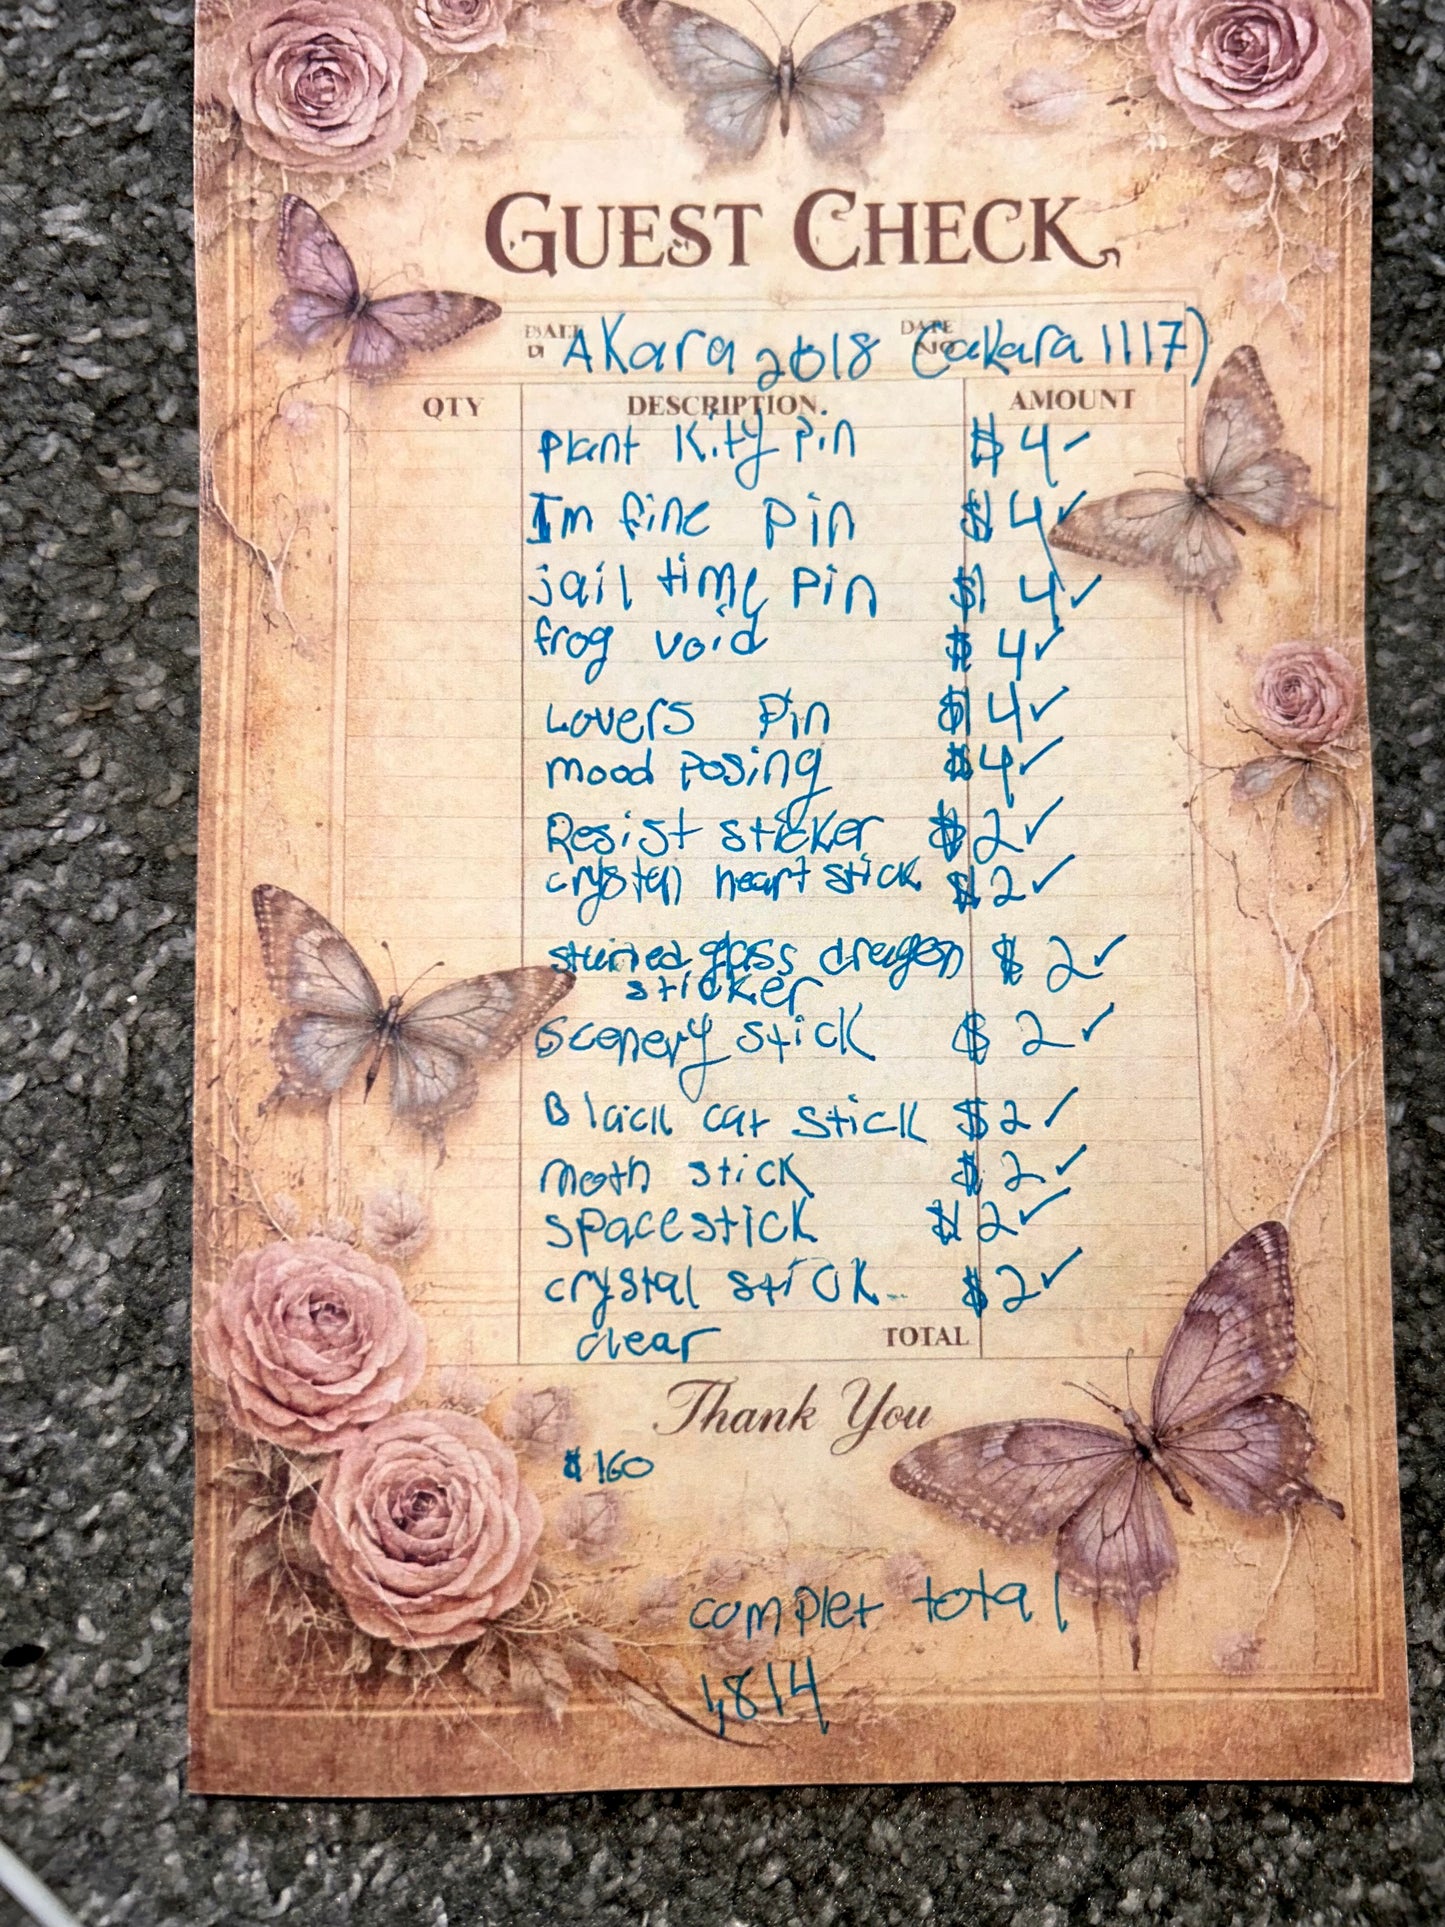 GUEST CHECK
AKara 2018 (akara 1117)
QTY DESCRIPTION AMOUNT
Plant Kity Pin $4
Im fine Pin $4
jail time Pin $4
frog void $4
Lovers Pin $4
mood posing $4
Resist sticker $2
crystal heart stick $2
stained glass dragon $2
sticker
Scenery stick $2
Black cat stick $2
moth stick $2
space stick $2
crystal stick $2
clear TOTAL
Thank You
$160
complet total
1,814